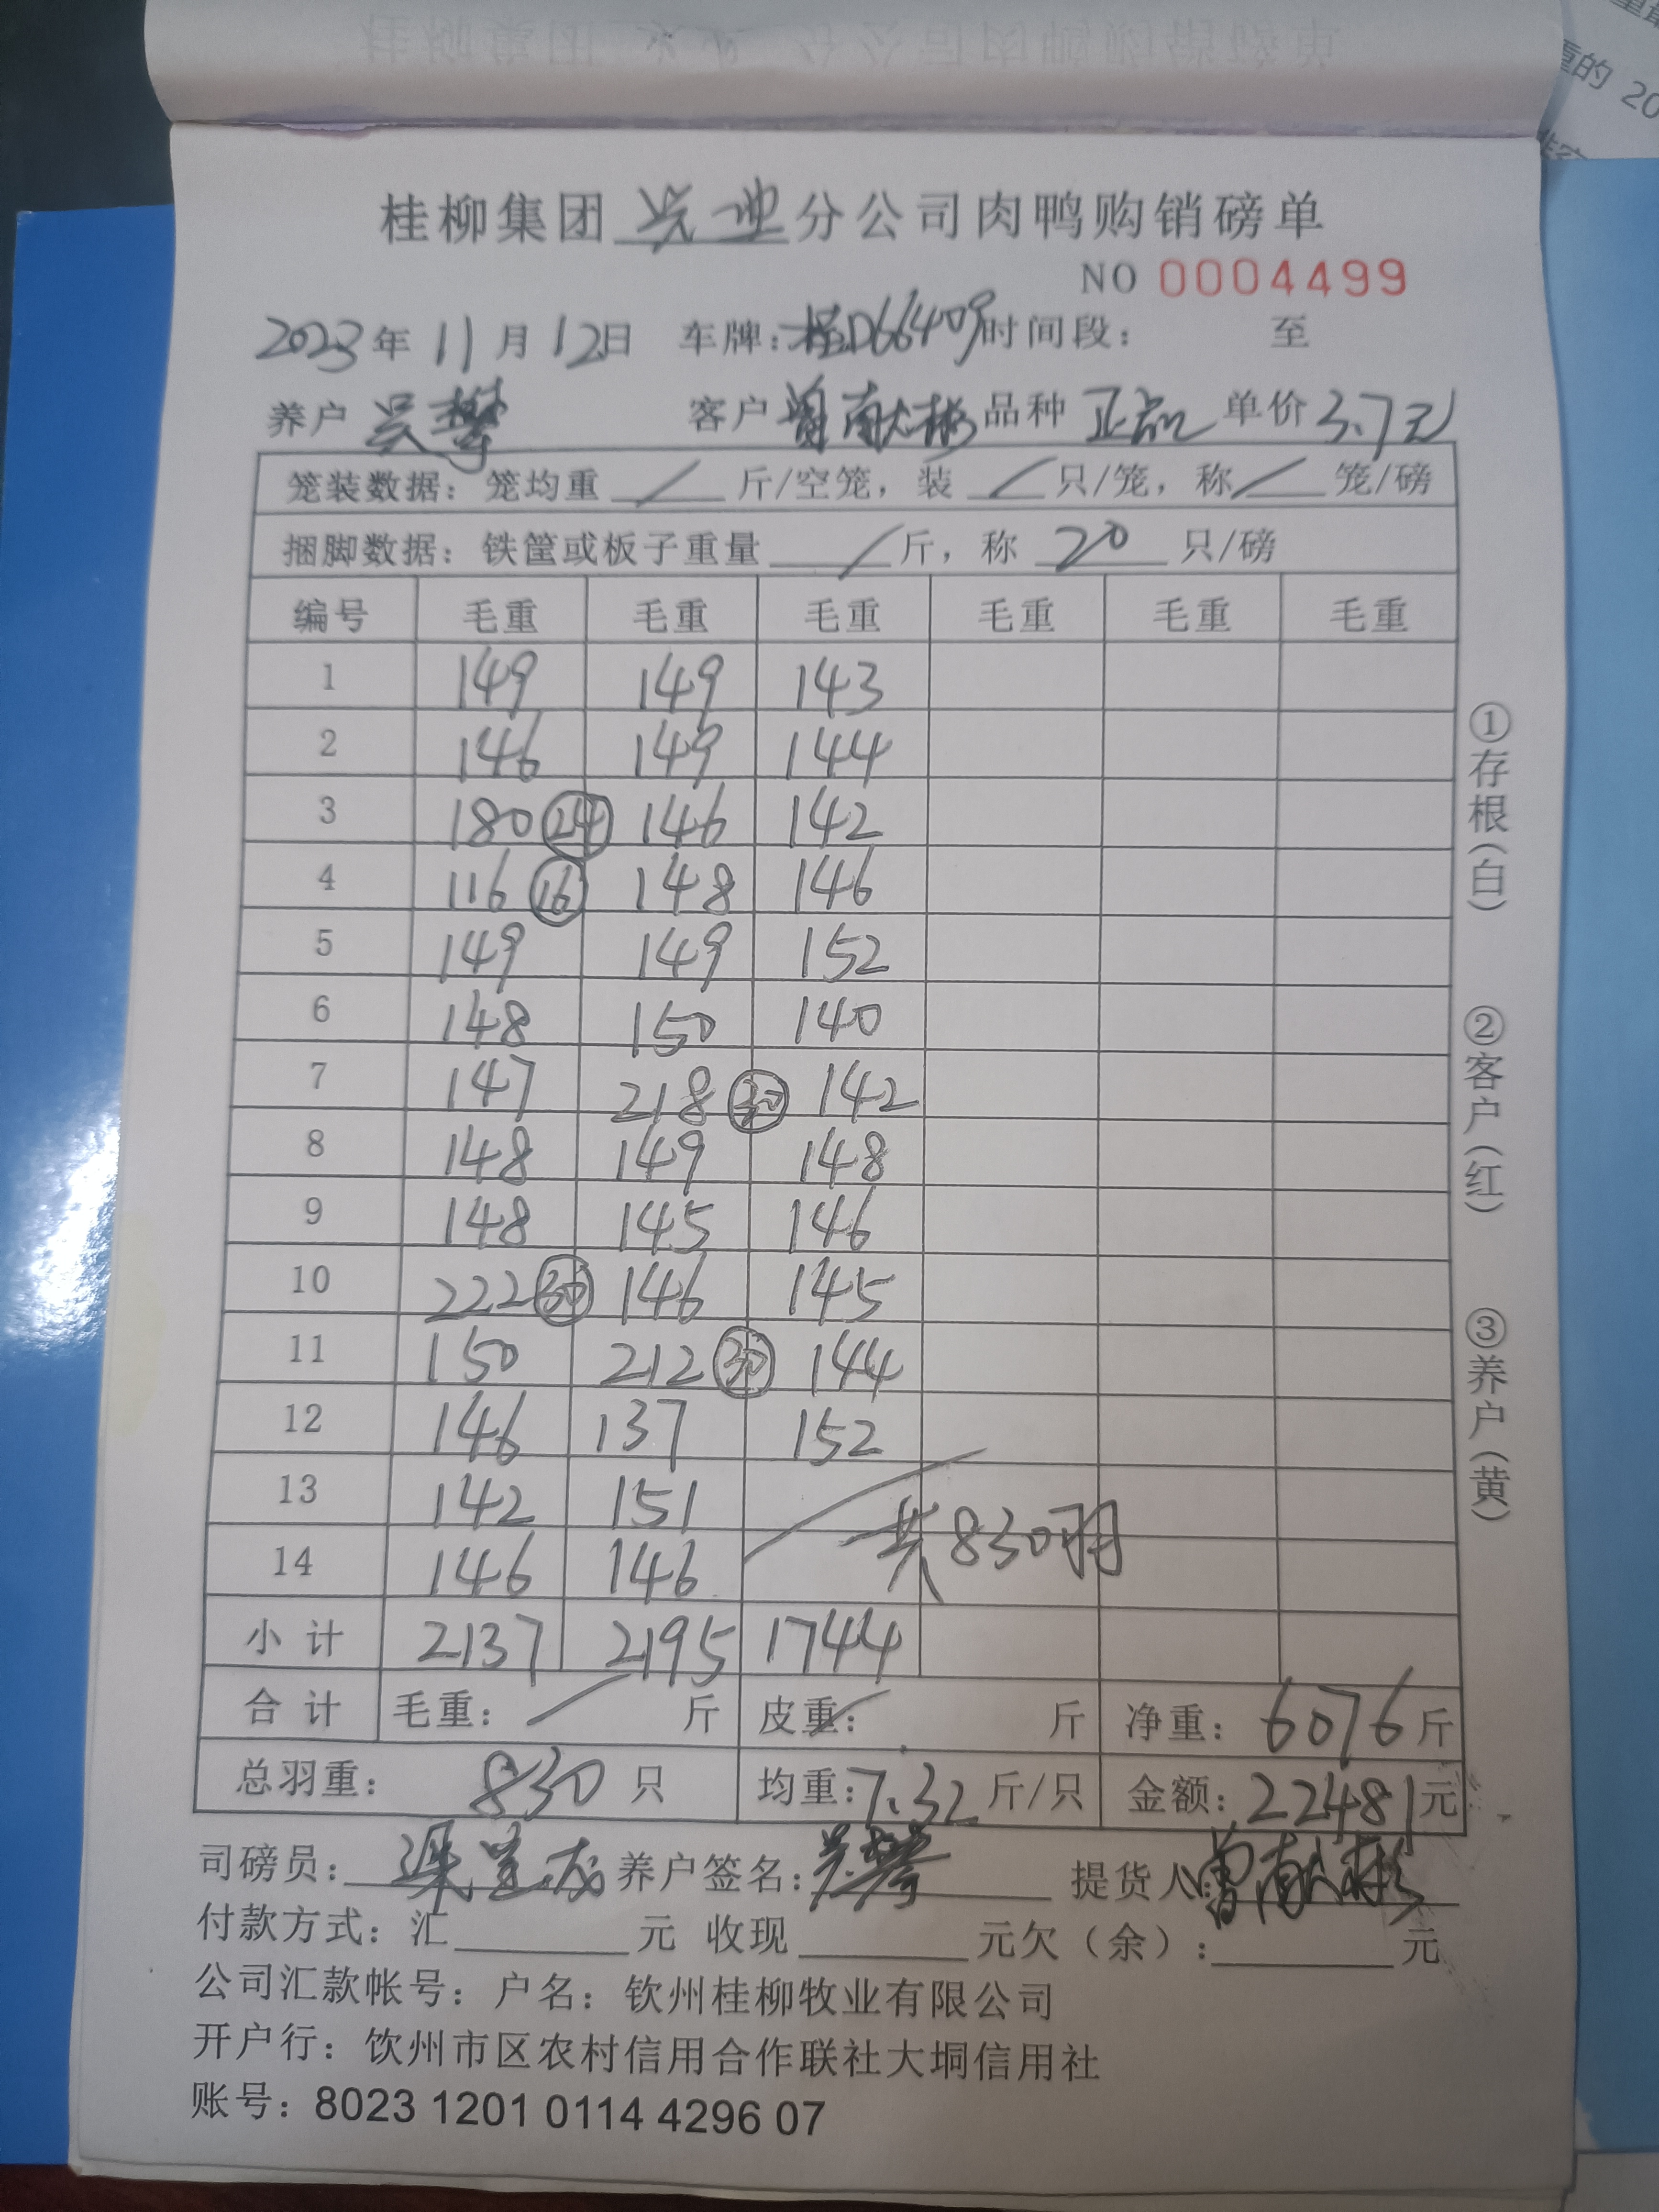 桂柳集团 兴业 分公司肉鸭购销磅单
NO 0004499
2023年 11月 12日 车牌：桂D66409 时间段： 至
养户 吴攀 客户 曾献彬 品种 正品 单价 3.7元
笼装数据：笼均重 / 斤/空笼，装 / 只/笼，称 / 笼/磅
捆脚数据：铁筐或板子重量 / 斤，称 20 只/磅
编号 毛重 毛重 毛重 毛重 毛重 毛重
1 149 149 143
2 146 149 144
3 180 24 146 142
4 116 16 148 146
5 149 149 152
6 148 150 140
7 147 218 30 142
8 148 149 148
9 148 145 146
10 222 30 146 145
11 150 212 30 144
12 146 137 152
13 142 151
14 146 146
共830羽
小计 2137 2195 1744
合计 毛重： / 斤 皮重： / 斤 净重：6076斤
总羽重： 830 只 均重：7.32 斤/只 金额：22481元
司磅员： 养户签名：吴攀 提货人：曾献彬
付款方式：汇 元 收现 元欠（余）： 元
公司汇款帐号：户名：钦州桂柳牧业有限公司
开户行：饮州市区农村信用合作联社大垌信用社
账号：8023 1201 0114 4296 07
①存根（白）
②客户（红）
③养户（黄）